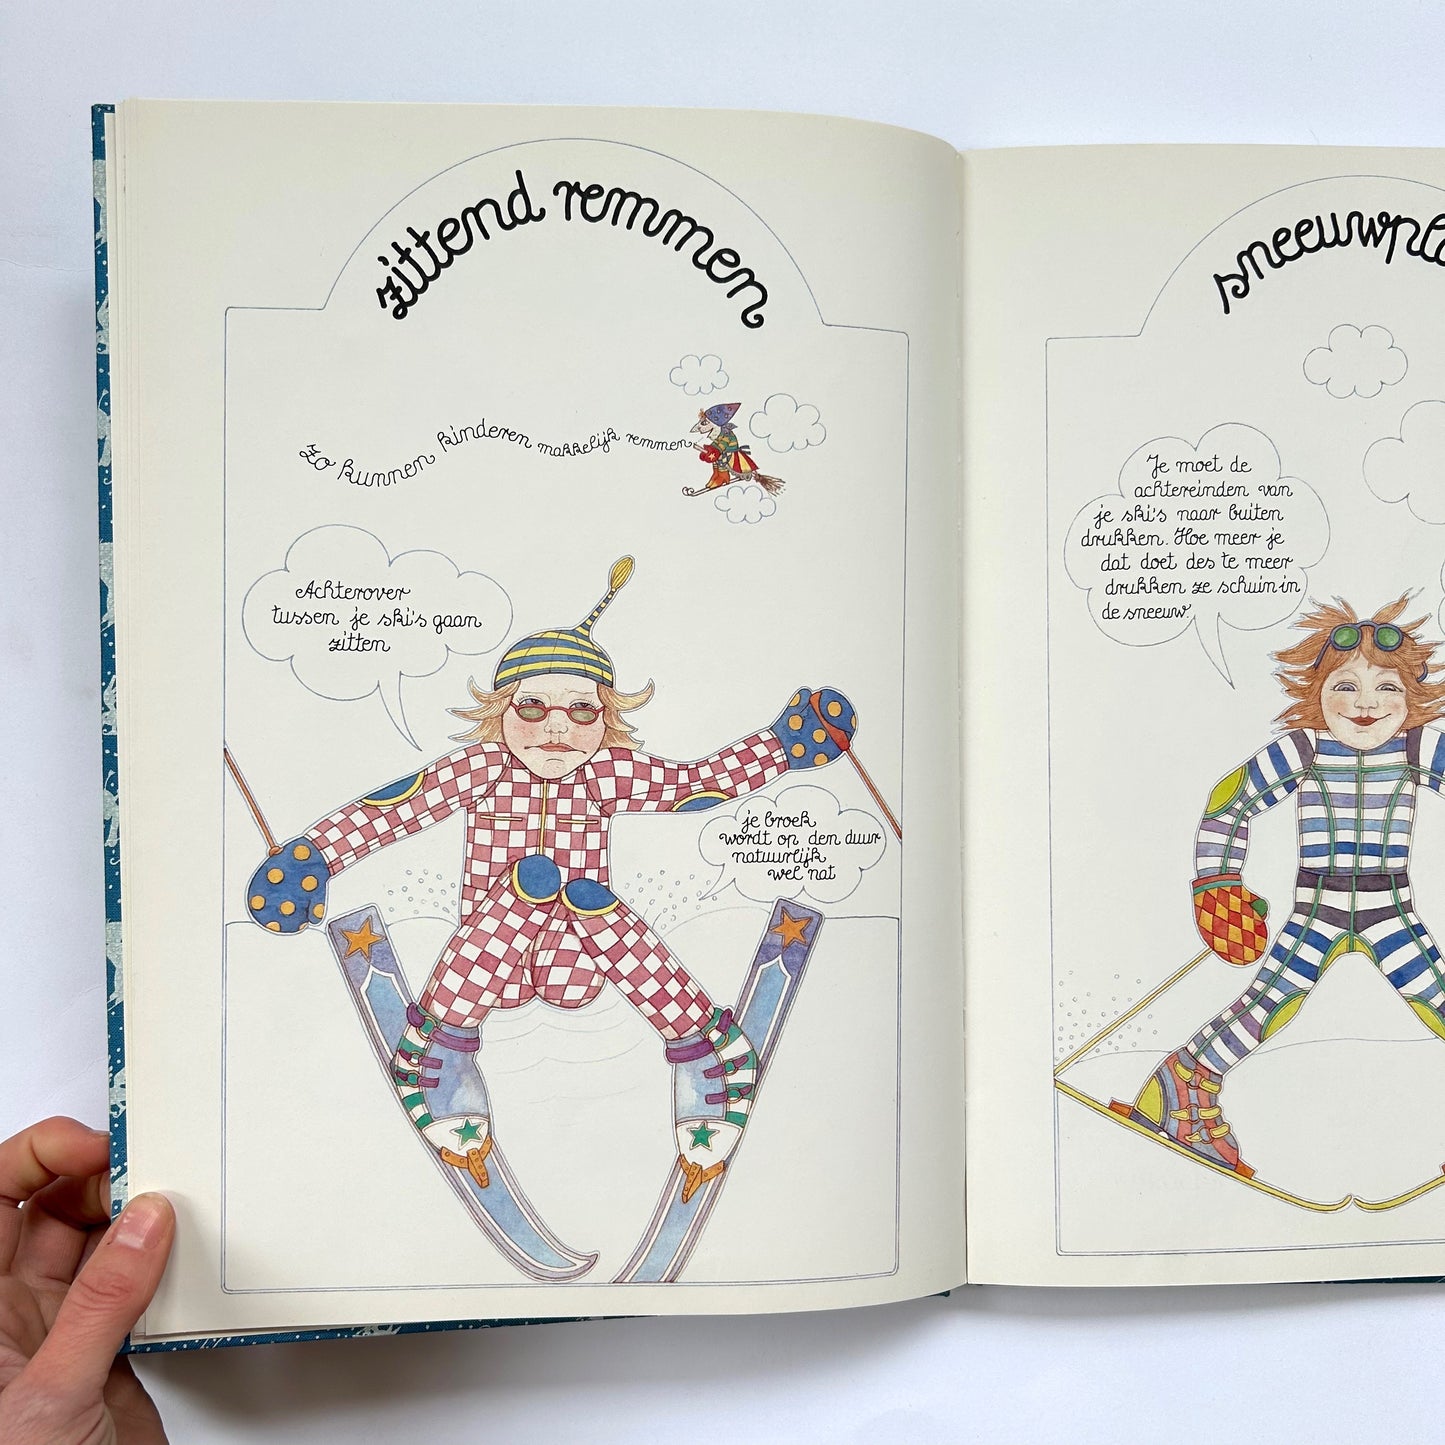 zittend remmen
Zo kunnen kinderen makkelijk remmen
Achterover
tussen je ski's gaan
zitten
je broek
wordt op den duur
natuurlijk
wel nat
Je moet de
achtereinden van
je ski's naar buiten
drukken. Hoe meer je
dat doet des te meer
drukken ze schuin in
de sneeuw.